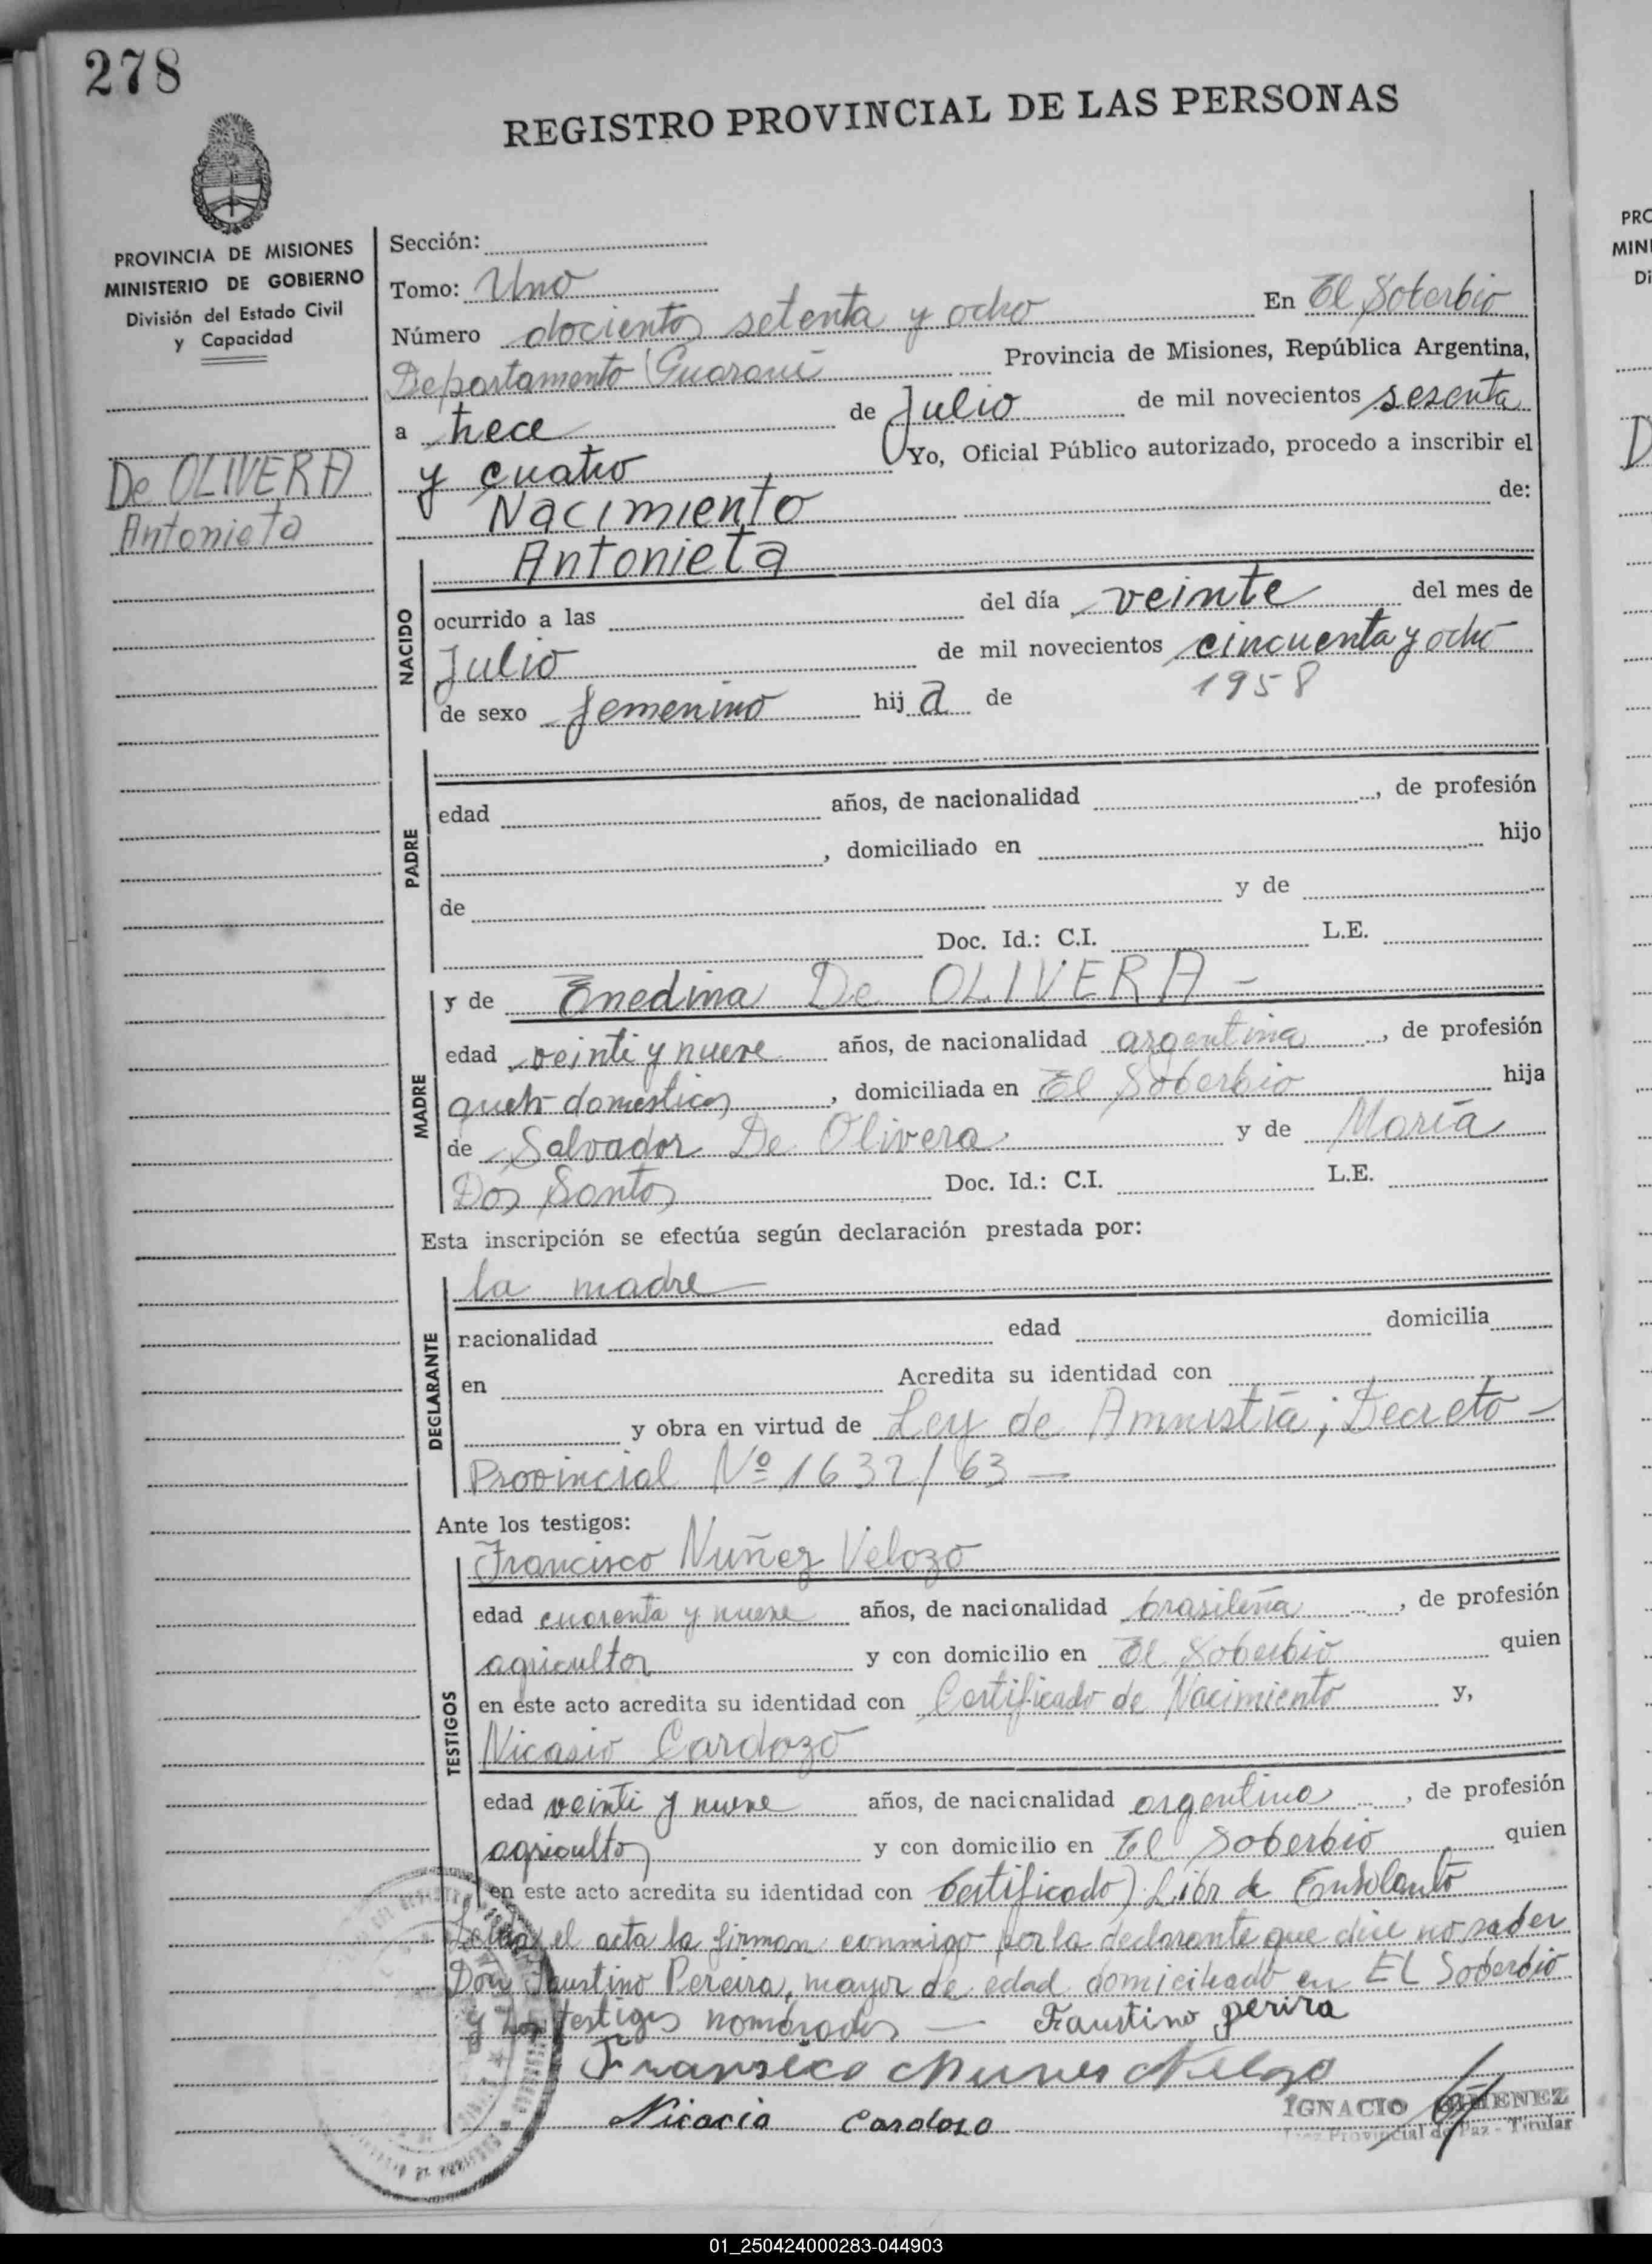 278
REGISTRO PROVINCIAL DE LAS PERSONAS
PROVINCIA DE MISIONES
MINISTERIO DE GOBIERNO
División del Estado Civil
y Capacidad
De OLIVERA
Antonieta
Sección:
Tomo: Uno
Número docientos setenta y ocho En El Soberbio
Departamento Guaraní Provincia de Misiones, República Argentina,
a trece de Julio de mil novecientos sesenta
y cuatro Yo, Oficial Público autorizado, procedo a inscribir el
Nacimiento de:
Antonieta
NACIDO
ocurrido a las del día veinte del mes de
Julio de mil novecientos cincuenta y ocho
1958
de sexo femenino hij a de
PADRE
edad años, de nacionalidad , de profesión
, domiciliado en hijo
de y de
Doc. Id.: C.I. L.E.
MADRE
y de Enedina De OLIVERA -
edad veinti y nueve años, de nacionalidad argentina , de profesión
queh domesticos , domiciliada en El Soberbio hija
de Salvador De Olivera y de María
Dos Santos Doc. Id.: C.I. L.E.
Esta inscripción se efectúa según declaración prestada por:
DECLARANTE
la madre
nacionalidad edad domicilia
en Acredita su identidad con
y obra en virtud de Ley de Amnistía; Decreto -
Provincial Nº 1632/63 —
Ante los testigos:
TESTIGOS
Francisco Nuñez Velozo
edad cuarenta y nueve años, de nacionalidad brasileña , de profesión
agricultor y con domicilio en El Soberbio quien
en este acto acredita su identidad con Certificado de Nacimiento y,
Nicasio Cardozo
edad veinti y nueve años, de nacionalidad argentina , de profesión
agricultor y con domicilio en El Soberbio quien
en este acto acredita su identidad con Certificado) Libr de
Leida el acta la firman conmigo por la declarante que dice no saber
Don Faustino Pereira, mayor de edad domiciliado en El Soberbio
y los testigos nombrados — Faustino perira
Fransico Nunes
Nicacio Cardozo
IGNACIO GIMENEZ
Juez Provincial de Paz - Titular
PRO
MINI
Di
D
01_250424000283-044903